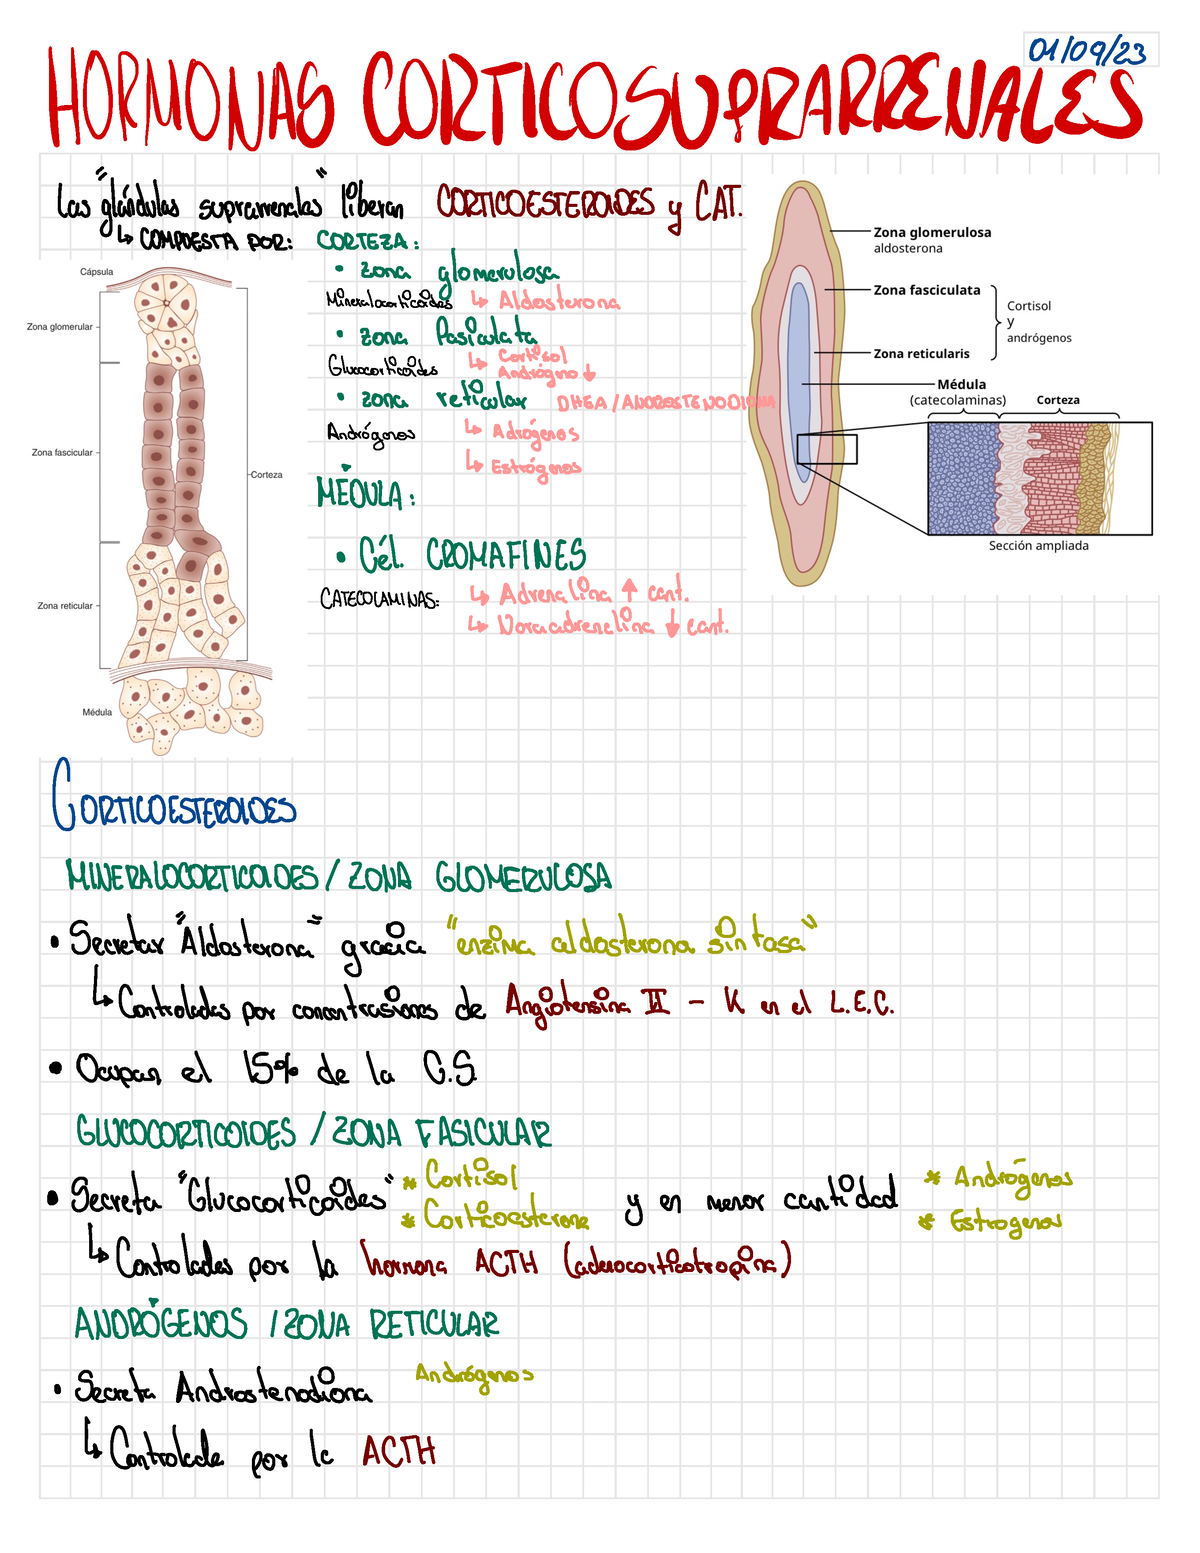 01/09/23
HORMONAS CORTICOSUPRARRENALES
Las "glándulas suprarrenales" liberan CORTICOESTEROIDES y CAT.
↳ COMPUESTA POR: CORTEZA:
• zona glomerulosa
Mineralocorticoides ↳ Aldosterona
• zona Fasiculata
Glucocorticoides ↳ Cortisol
Andrógno ↓
• zona reticular DHEA / ANDROSTENODIONA
Andrógenos ↳ Adrógenos
↳ Estrógenos
MÉDULA:
• Cél. CROMAFINES
CATECOLAMINAS: ↳ Adrenalina ↑ cant.
↳ Noraadrenelina ↓ cant.
Cápsula
Zona glomerular
Zona fascicular
Corteza
Zona reticular
Médula
Zona glomerulosa
aldosterona
Zona fasciculata
Cortisol
y
andrógenos
Zona reticularis
Médula
(catecolaminas)
Corteza
Sección ampliada
CORTICOESTEROIDES
MINERALOCORTICOIDES / ZONA GLOMERULOSA
• Secretar "Aldosterona" gracia "enzima aldosterona sintasa"
↳ Controladas por concentrasiones de Angiotensina II - K en el L.E.C.
• Ocupan el 15% de la C.S.
GLUCOCORTICOIDES / ZONA FASICULAR
• Secreta "Glucocorticoides" * Cortisol
* Corticoesterona y en menor cantidad * Andrógenos
* Estrogenos
↳ Controlades por la hormona ACTH (aderocorticotropina)
ANDRÓGENOS / ZONA RETICULAR
• Secreta Androstenodiona Andrógenos
↳ Controlade por la ACTH